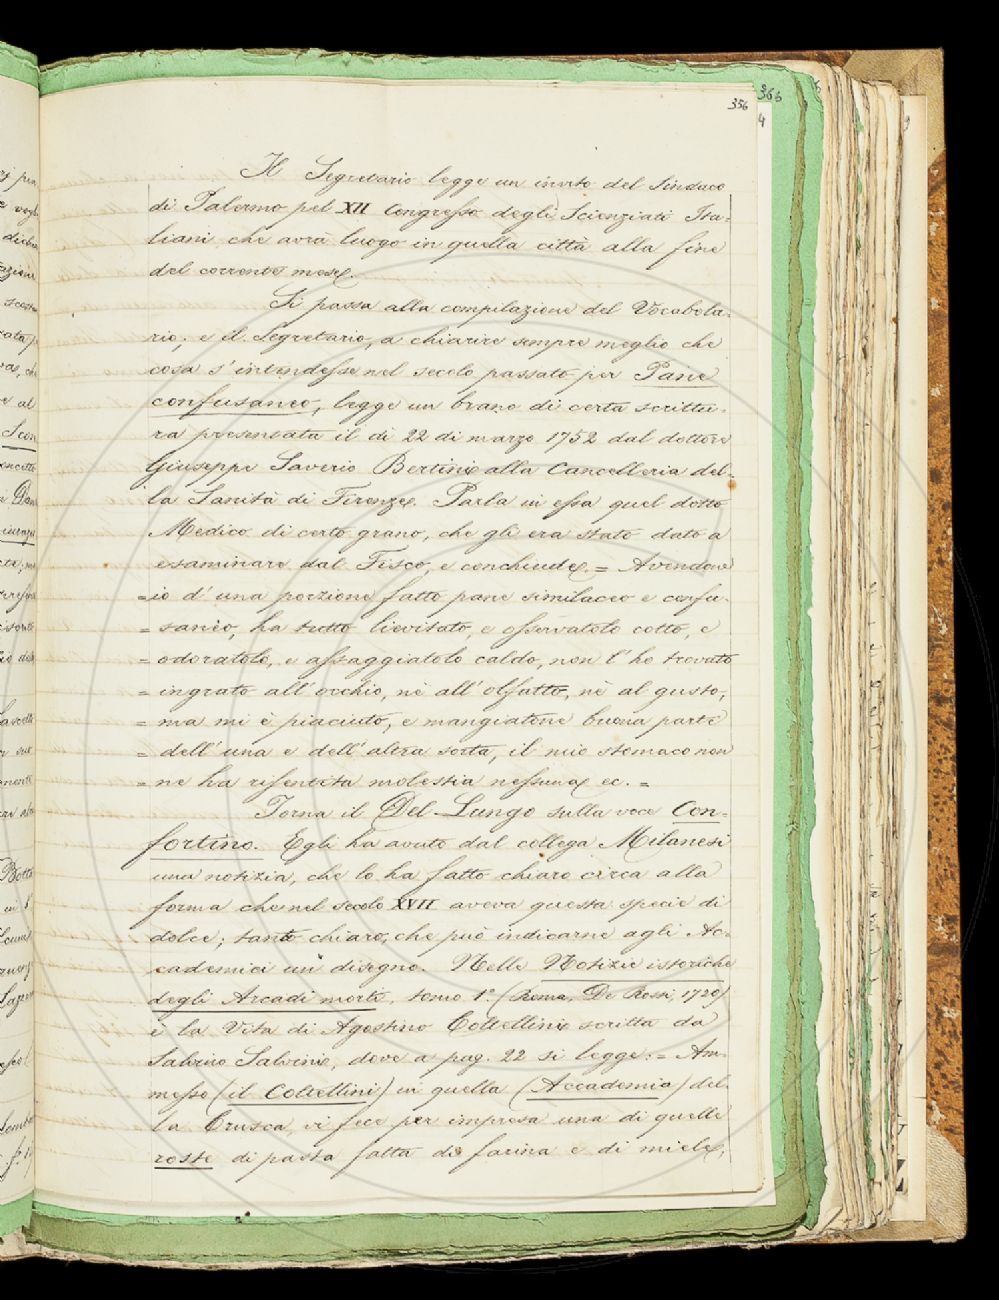 356
366
4
Il Segretario legge un invito del Sindaco
di Palermo pel XII Congresso degli Scienziati Ita-
liani che avrà luogo in quella città alla fine
del corrente mese.
Si passa alla compilazione del Vocabola-
rio; e il Segretario, a chiarire sempre meglio che
cosa s'intendesse nel secolo passato per Pane
confusaneo, legge un brano di certa scrittu-
ra presentata il dì 22 di marzo 1752 dal dottore
Giuseppe Saverio Bertini alla Cancelleria del-
la Sanità di Firenze. Parla in essa quel dotto
Medico di certo grano, che gli era stato dato a
esaminare dal Fisco, e conchiude, = Avendone
= io d'una porzione fatto pane similaceo e confu-
= saneo, ha tutto lievitato, e osservatolo cotto, e
= odoratolo, e assaggiatolo caldo, non l'ho trovato
= ingrato all'occhio, nè all'olfatto, nè al gusto,
= ma mi è piaciuto, e mangiatone buona parte
= dell'una e dell'altra sorta, il mio stomaco non
= ne ha risentita molestia nessuna ec. =
Torna il Del-Lungo sulla voce Con-
fortino. Egli ha avuto dal collega Milanesi
una notizia, che lo ha fatto chiaro circa alla
forma che nel secolo XVII aveva questa specie di
dolce; tanto chiaro, che può indicarne agli Ac-
cademici un disegno. Nelle Notizie istoriche
degli Arcadi morti, tomo 1º (Roma, De Rossi, 1720)
è la Vita di Agostino Coltellini scritta da
Salvino Salvini, dove a pag. 22 si legge: = Am-
messo (il Coltellini) in quella (Accademia) del-
la Crusca, vi fece per impresa una di quelle
roste di pasta fatta di farina e di miele,